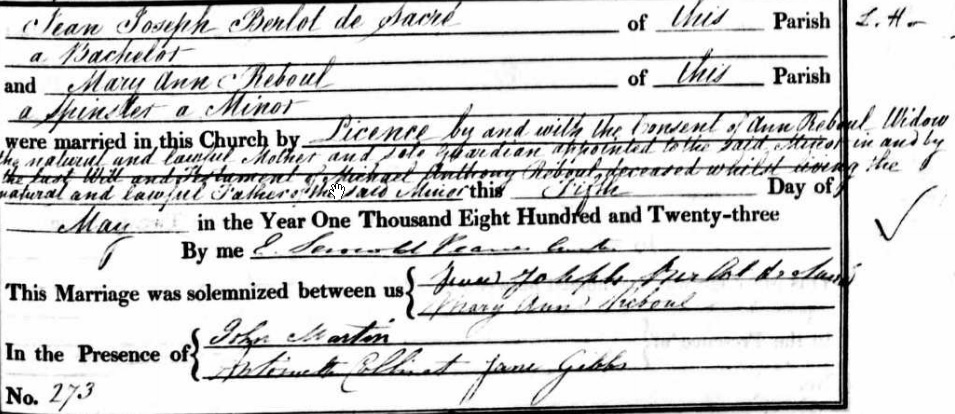 Jean Joseph Berlot de Sacré of this Parish L. H.
a Bachelor
and Mary Ann Reboul of this Parish
a Spinster a Minor
were married in this Church by Licence by and with the Consent of Ann Reboul Widow
the natural and lawful Mother and sole Guardian appointed to the said Minor in and by
the last Will and Testament of Michael Anthony Reboul deceased whilst living the
natural and lawful Father of the said Minor this Fifth Day of
May in the Year One Thousand Eight Hundred and Twenty-three
By me E.
This Marriage was solemnized between us { Jean Joseph Berlot de Sacré
Mary Ann Reboul
In the Presence of { John Martin
Jane Gibbs
No. 273